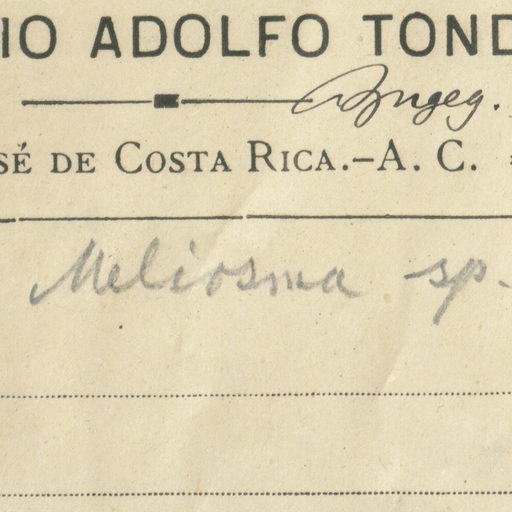 IO ADOLFO TOND
SÉ DE COSTA RICA.—A. C.
Meliosma sp.